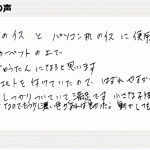 の声
のイスと パソコン机のイスに使用
カーペットの上で、
じゅうたんになると思います
ルトを付けていたので、はずれやすか
しっかりついていて満足です 小さな
なのでもう少し濃い色があれば良かった。動かしても